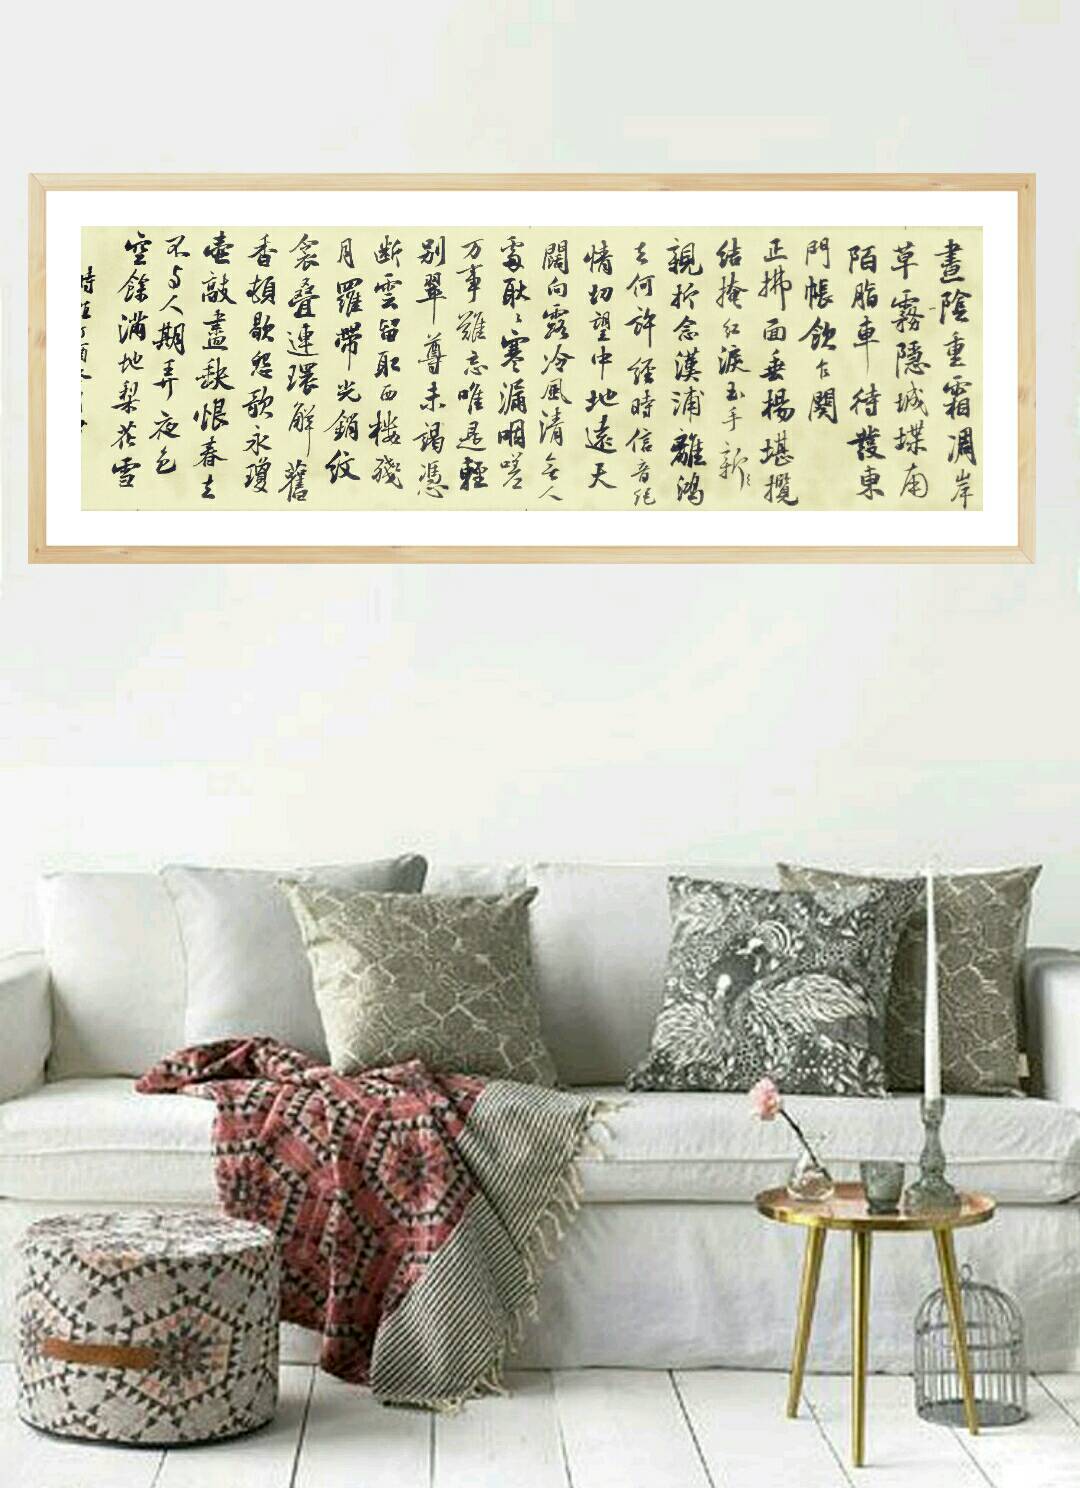 晝陰重霜凋岸
草霧隱城堞南
陌脂車待發東
門帳飲乍闋
正拂面垂楊堪攬
結掩紅淚玉手新
親折念漢浦離鴻
去何許經時信音絕
情切望中地遠天
闊向露冷風清無人
處耿〻寒漏咽嗟
万事難忘唯是輕
別翠尊未竭憑
斷雲留取西樓殘
月羅帶光銷紋
衾疊連環解舊
香頓歇怨歌永瓊
壺敲盡缺恨春去
不与人期弄夜色
空餘滿地梨花雪
時